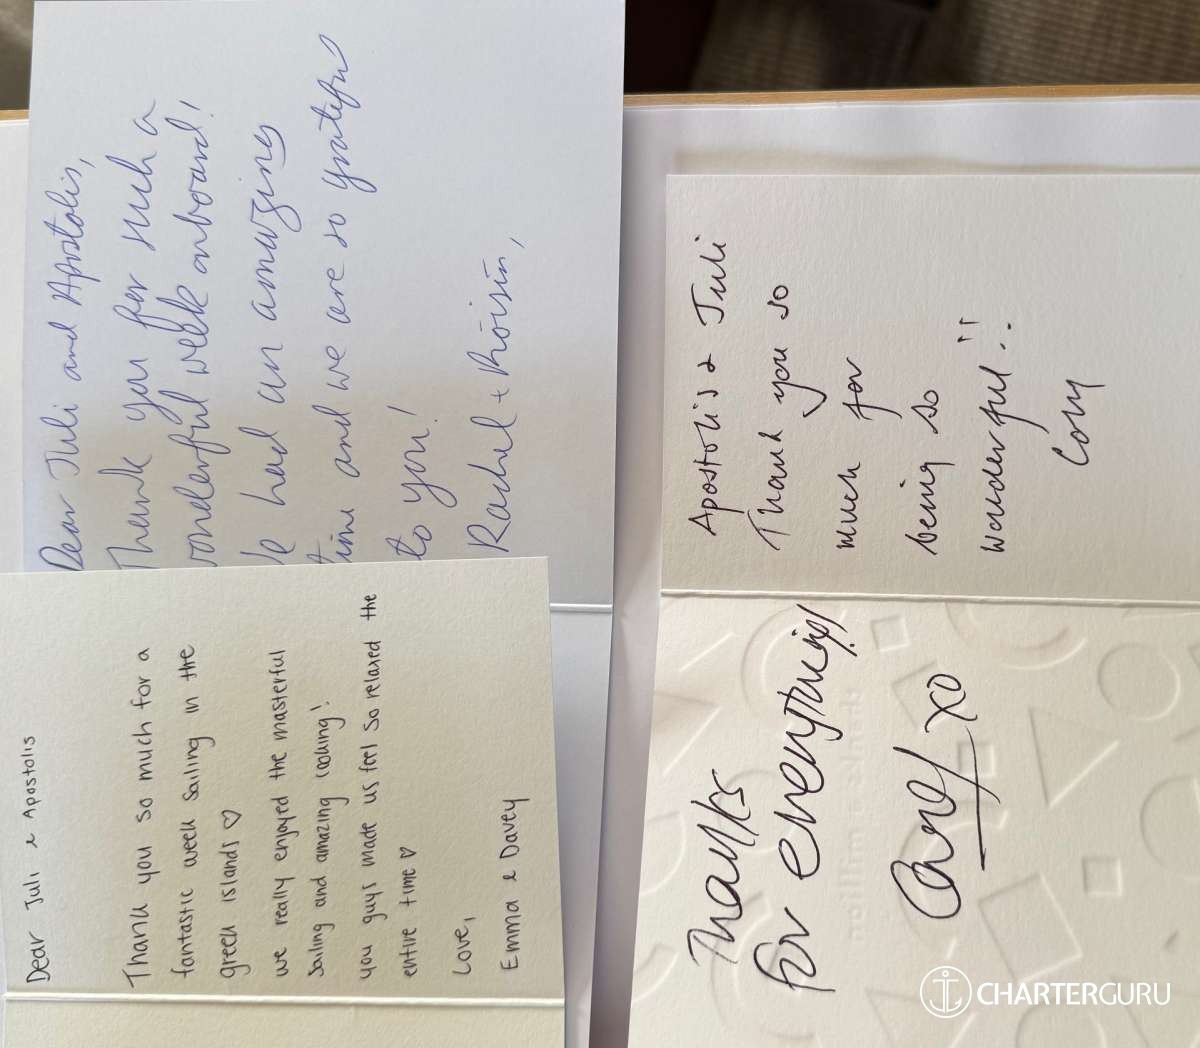 Dear Juli and Apostolis,
Thank you for such a
wonderful week onboard!
We had an amazing
time and we are so grateful
to you!
Rachel + Róisín,
Dear Juli & Apostolis
Thank you so much for a
fantastic week sailing in the
greek islands ♡
we really enjoyed the masterful
sailing and amazing cooking!
you guys made us feel so relaxed the
entire time ♡
Love,
Emma & Davey
Apostolis & Juli
Thank you so
much for
being so
wonderful!!
Thanks
for everything!
xo
thanks a million
CHARTERGURU